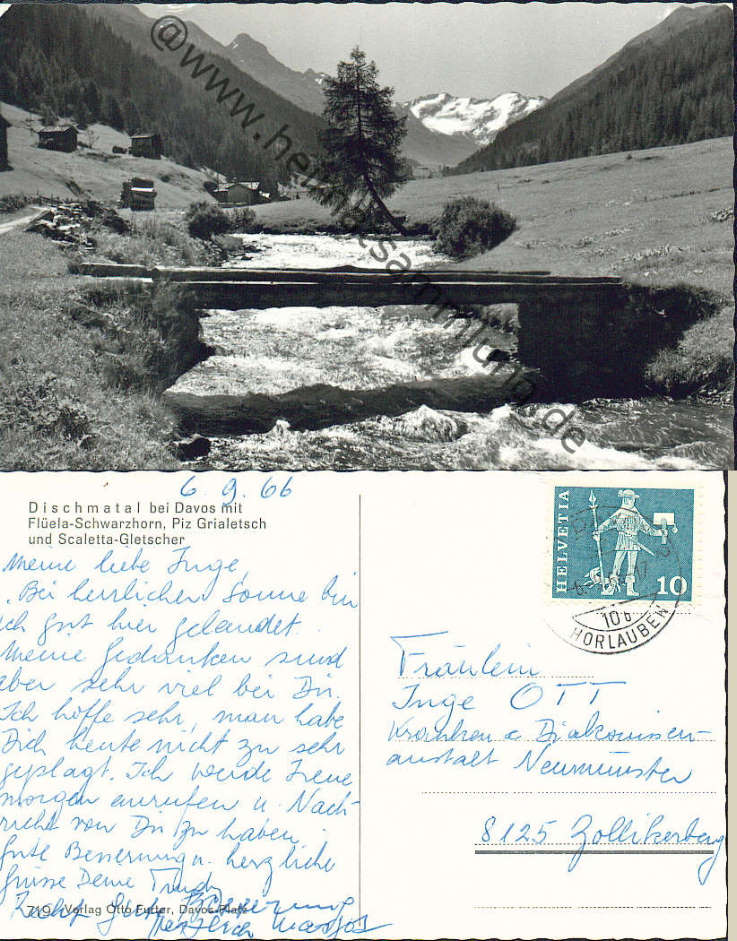 @www.heimatsammlung.de
6.9.66
Dischmatal bei Davos mit
Flüela-Schwarzhorn, Piz Grialetsch
und Scaletta-Gletscher
Meine liebe Inge,
Bei herrlicher Sonne bin
ich gut hier gelandet.
Meine Gedanken sind
aber sehr viel bei Dir.
Ich hoffe sehr, man habe
Dich heute nicht zu sehr
geplagt. Ich werde Irene
morgen anrufen u. Nach-
richt von Dir zu haben.
Gute Besserung u. herzliche
Grüsse Deine Trudy
Recht gute Besserung
719 Verlag Otto Furter, Davos-Platz
Herzlich
HELVETIA
10
HORLAUBEN
Fräulein
Inge OTT
Kranken & Diakonissen-
anstalt Neumünster
8125 Zollikerberg